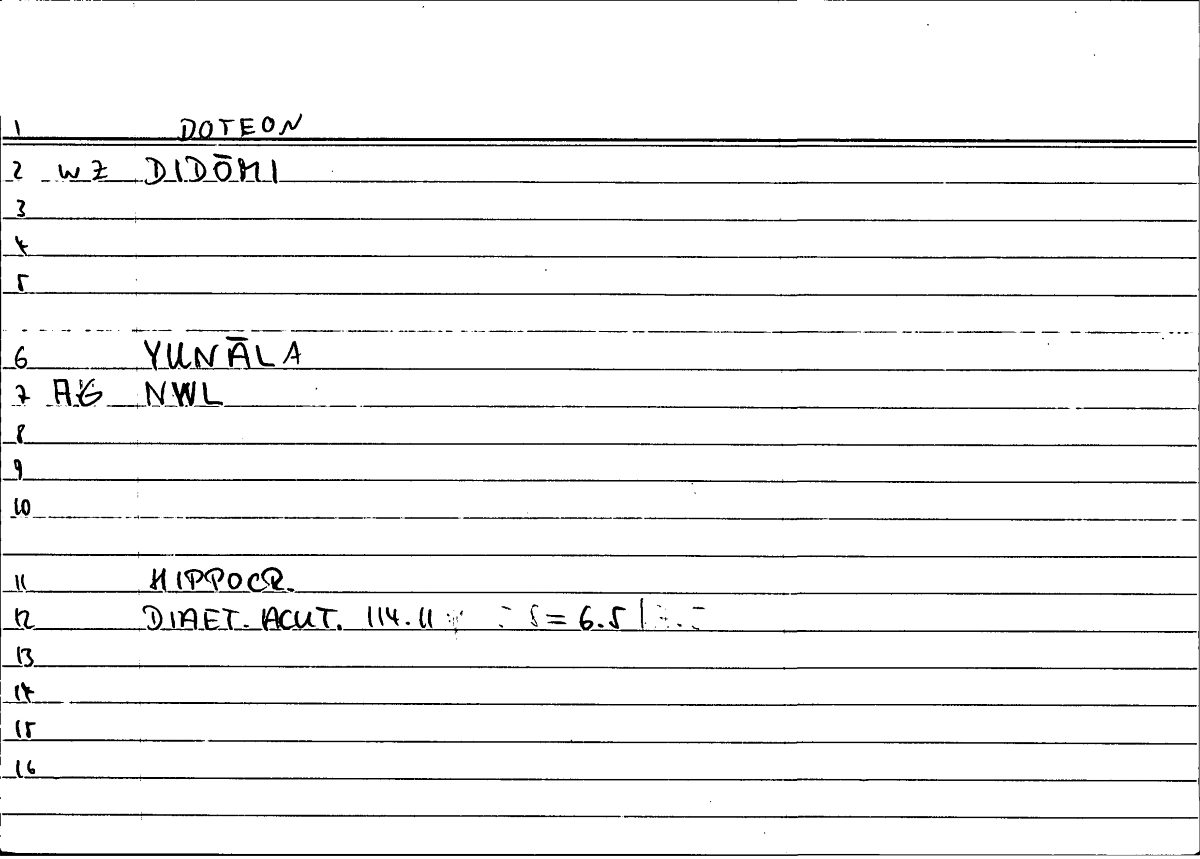 1 DOTEON
2 WZ DIDŌMI
3
4
5
6 YUNĀLA
7 AG NWL
8
9
10
11 HIPPOCR.
12 DIAET. ACUT. 114.11 = 6.5
13
14
15
16